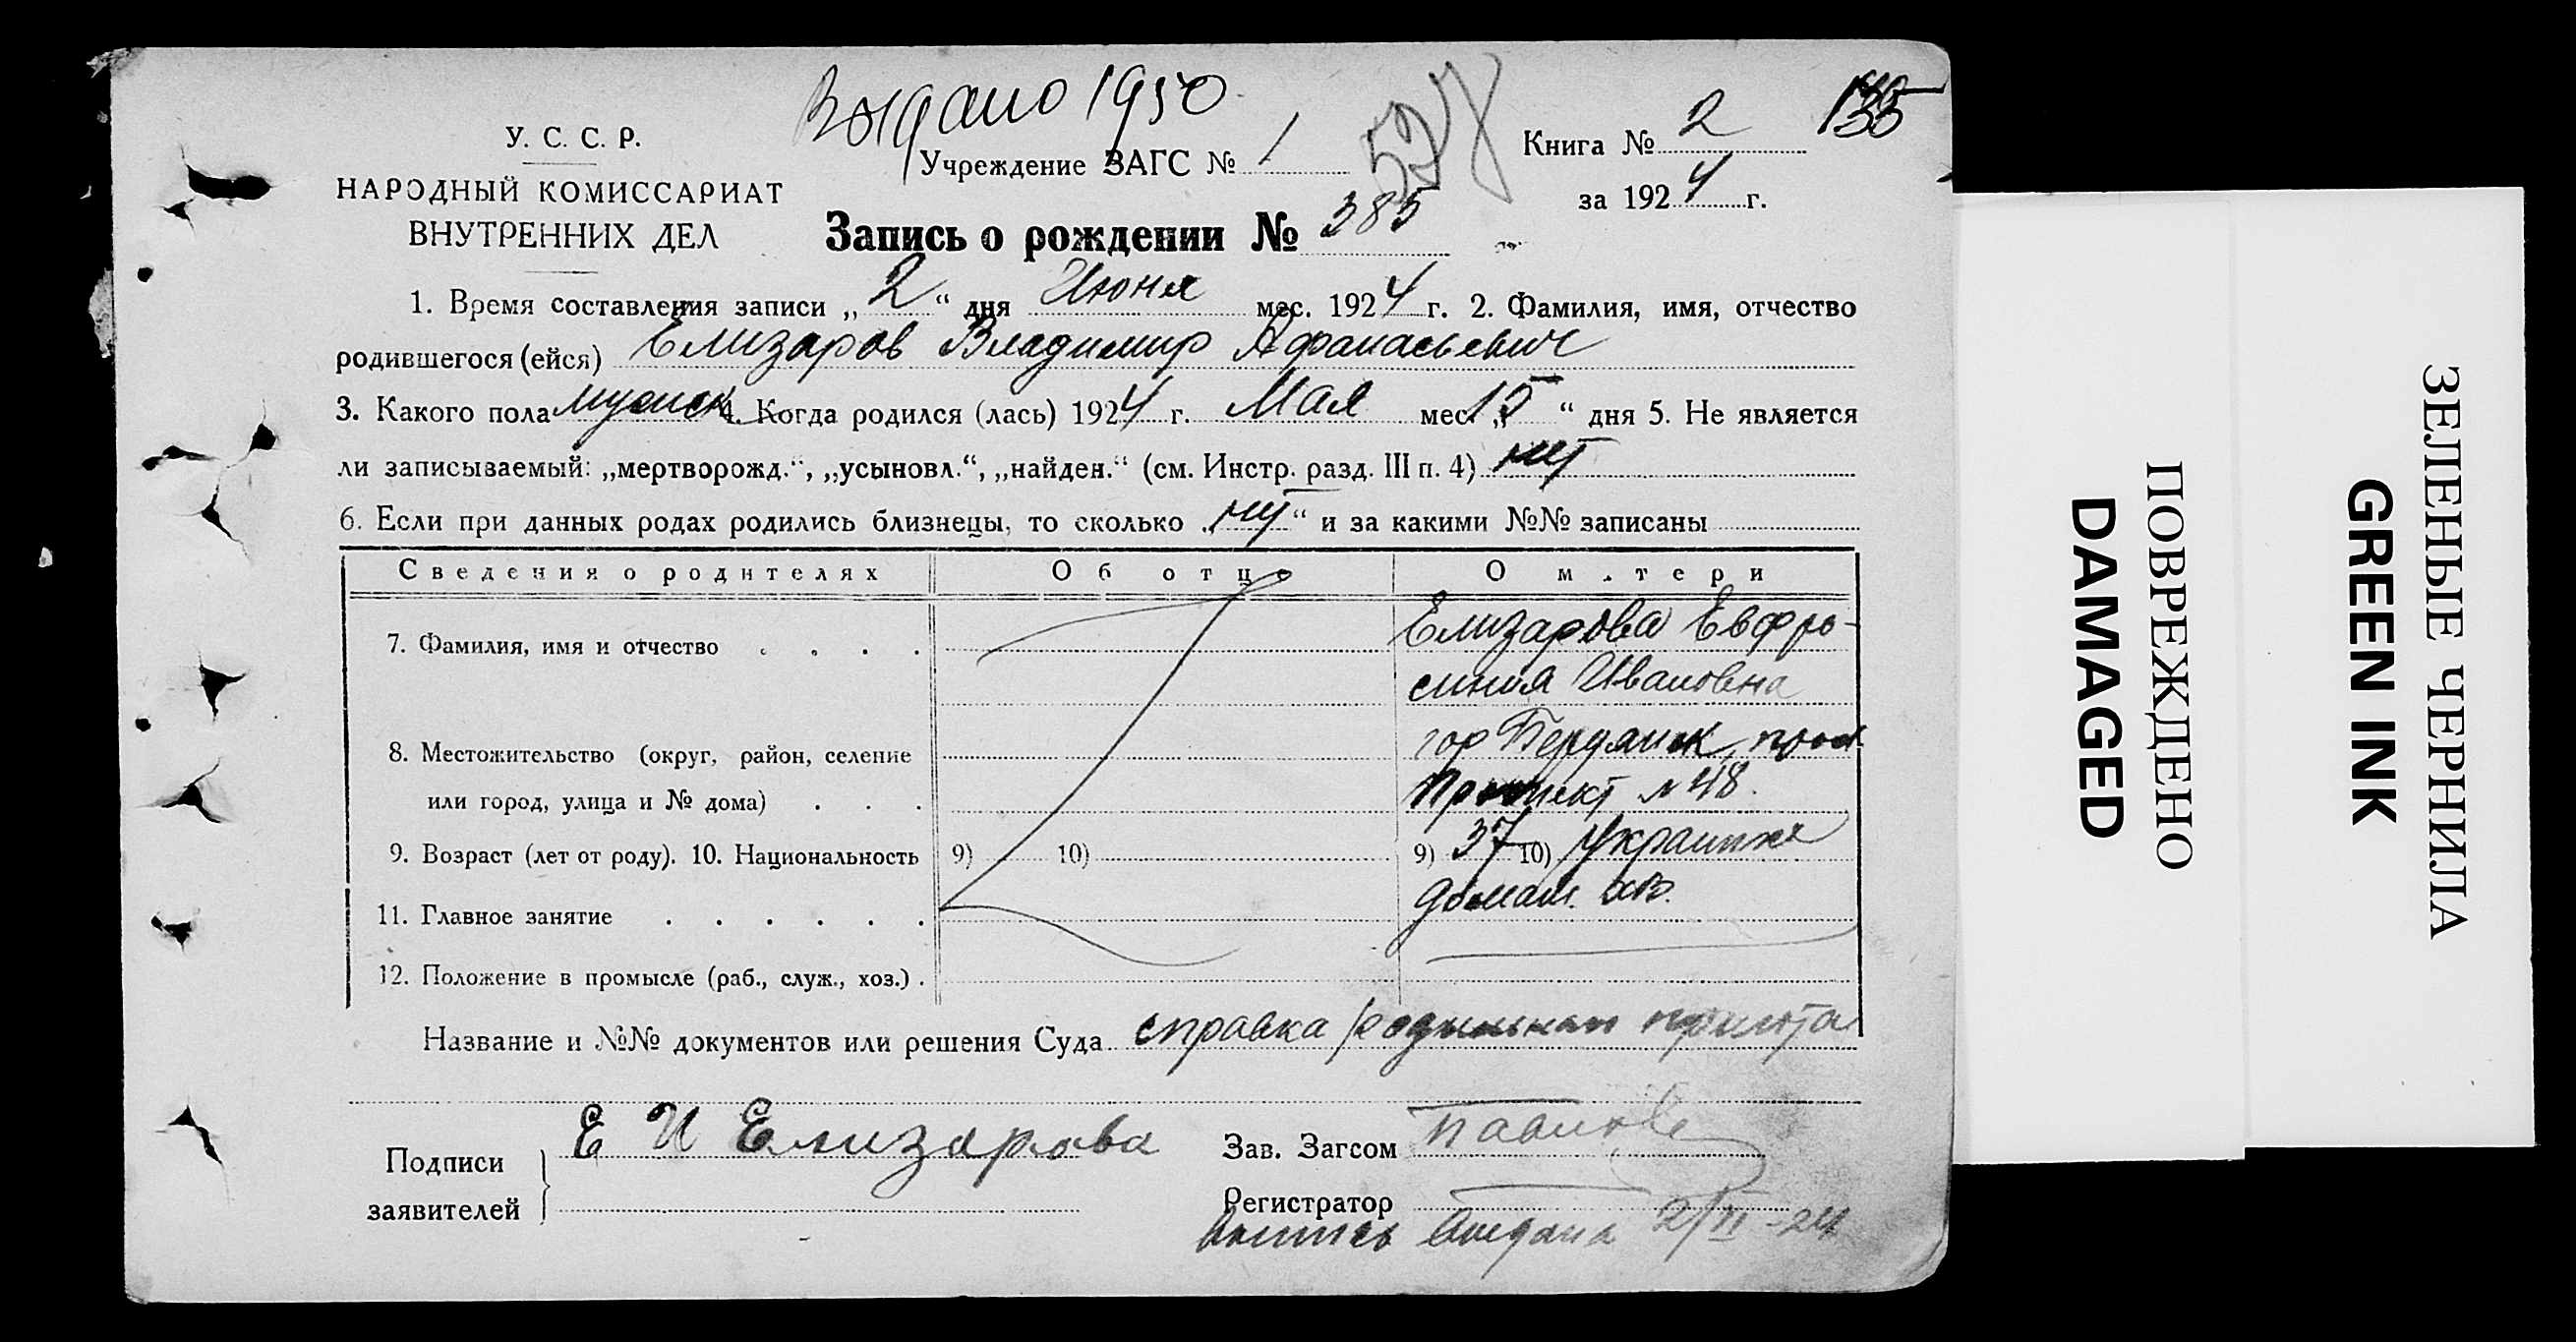 Выдано 1950
У. С. С. Р.
НАРОДНЫЙ КОМИССАРИАТ
ВНУТРЕННИХ ДЕЛ
Учреждение ЗАГС № 1
527
Книга № 2
135
за 1924 г.
Запись о рождении № 385
1. Время составления записи „2“ дня Июня мес. 1924 г. 2. Фамилия, имя, отчество
родившегося (ейся) Елизаров Владимир Афанасьевич
3. Какого пола мужск 4. Когда родился (лась) 1924 г. Мая мес. „15“ дня 5. Не является
ли записываемый: „мертворожд.“, „усыновл.“, „найден.“ (см. Инстр. разд. III п. 4) нет
6. Если при данных родах родились близнецы, то сколько „нет“ и за какими №№ записаны
Сведения о родителях Об отце О матери
7. Фамилия, имя и отчество . . . . Елизарова Евфро-
синия Ивановна
8. Местожительство (округ, район, селение гор Бердянск,
или город, улица и № дома) . . . Проспект № 48.
9. Возраст (лет от роду). 10. Национальность 9) 10) 9) 37 10) Украинка
11. Главное занятие . . . . . . домаш. хоз.
12. Положение в промысле (раб., служ., хоз.) .
Название и №№ документов или решения Суда справка родильная приюта
Подписи заявителей Е И Елизарова
Зав. Загсом
Регистратор
выдана 2/VI-24
ПОВРЕЖДЕНО
DAMAGED
ЗЕЛЕНЫЕ ЧЕРНИЛА
GREEN INK